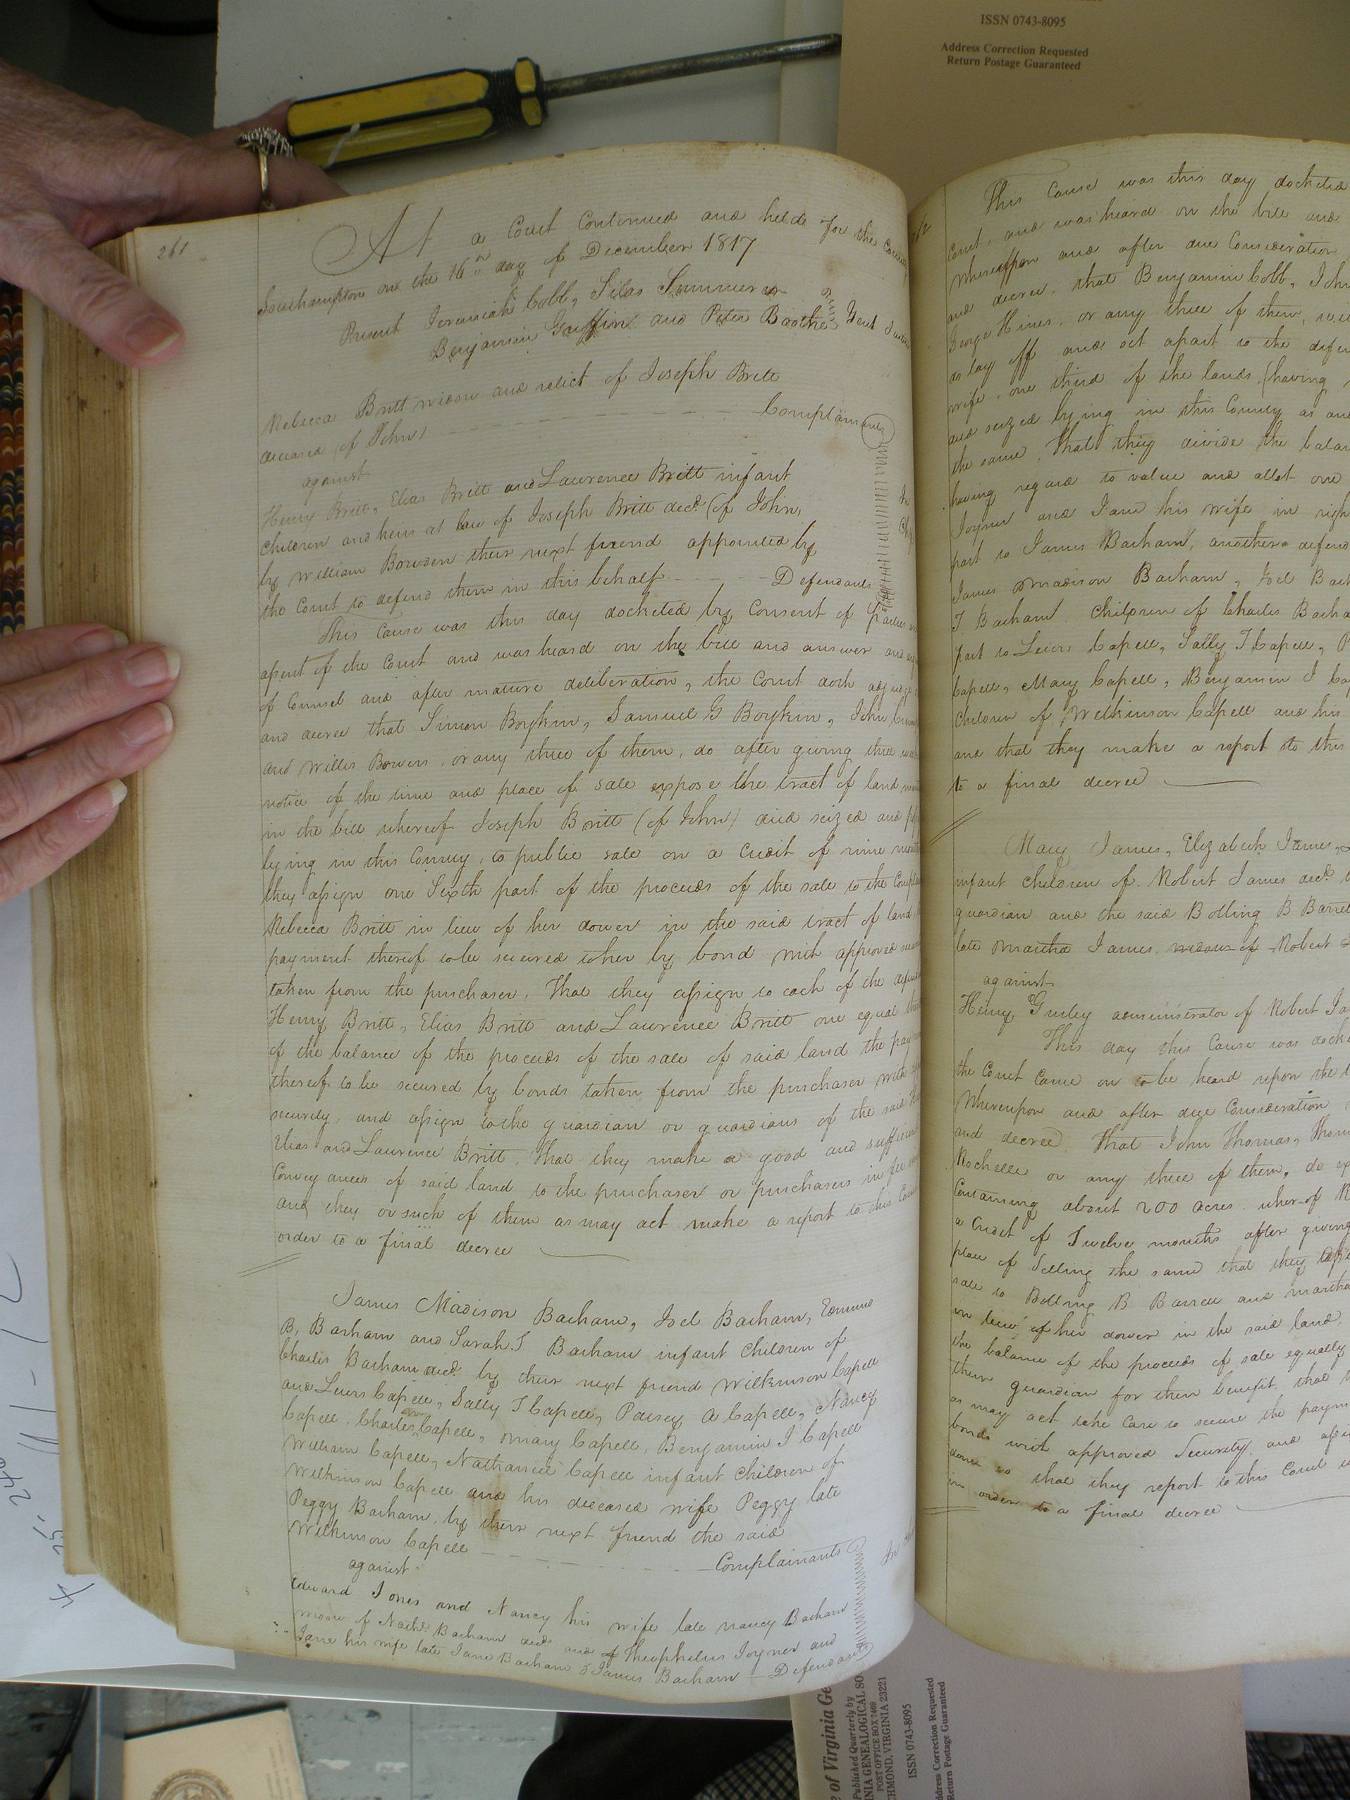 ISSN 0743-8095
Address Correction Requested
Return Postage Guaranteed
261
At a Court Continued and held for the County
Southampton on the 16th day of December 1817
Present Jeremiah Cobb, Silas Summerell
Benjamin Griffin and Peter Boothe Gent
Rebecca Britt widow and relict of Joseph Britt
deceased (of John) Complainant
against
Henry Britt, Elias Britt and Lawrence Britt infant
children and heirs at law of Joseph Britt decd. (of John)
by William Bowden their next friend appointed by
the Court to defend them in this behalf Defendants
This cause was this day docketed by Consent of parties
assent of the Court and was heard on the bill and answer and
of Counsel and after mature deliberation, the Court doth
and decree that Simon Boykin, Samuel G Boykin, John
and Willis Bowers, or any three of them, do after giving three
notice of the time and place of sale expose the tract of land
in the bill whereof Joseph Britt (of John) died seized and
lying in this County, to public sale on a Credit of nine
they assign one Sixth part of the proceeds of the sale to the
Rebecca Britt in lieu of her dower in the said tract of land
payment thereof to be secured to her by bond with approved
taken from the purchaser. That they assign to each of the
Henry Britt, Elias Britt and Lawrence Britt one equal
of the balance of the proceeds of the sale of said land the
thereof to be secured by bonds taken from the purchaser with
security, and assign to the guardian or guardians of the said
Elias and Lawrence Britt. That they make a good and sufficient
Conveyance of said land to the purchaser or purchasers in fee
and they or such of them as may act make a report to this Court
order to a final decree
James Madison Barham, Joel Barham, Edmund
B. Barham and Sarah T Barham infant Children of
Charles Barham decd. by their next friend Wilkinson Capell
and Lewis Capell, Sally T Capell, Patsey A Capell, Nancy
Capell, Charles Capell, Mary Capell, Benjamin J Capell
William Capell, Nathaniel Capell infant children of
Wilkinson Capell and his deceased wife Peggy late
Peggy Barham, by their next friend the said
Wilkinson Capell Complainants
against
Edward Jones and Nancy his wife late Nancy Barham
of Nathl. Barham decd. and of Theophelus Joyner and
Jane his wife late Jane Barham & James Barham Defendants
This Cause was this day docketed
Court, and was heard on the bill and
Whereupon and after due Consideration
and decree, that Benjamin Cobb, John
George Hines, or any three of them,
as lay off and set apart to the
wife, one third of the lands, (having
and seized lying in this County as
the same. That they divide the
having regard to value and allot one
Joyner and Jane his wife in
part to James Barham, another
James Madison Barham, Joel
T Barham Children of Charles
part to Lewis Capell, Sally T Capell,
Capell, Mary Capell, Benjamin J
Children of Wilkinson Capell and his
and that they make a report to this
to a final decree
Mary James, Elizabeth James,
infant children of Robert James decd.
guardian and the said Bolling B
late Martha James, widow of Robert
against
Henry Gurley administrator of Robert
This day this Cause was
the Court Came on to be heard upon the
Whereupon and after due Consideration
and decree That John Thomas,
Rochelle or any three of them, do
Containing about 200 acres whereof
a Credit of Twelve months after giving
place of Selling the same that they
sale to Bolling B. Barrett and
in lieu of her dower in the said land,
the balance of the proceeds of sale equally
their guardian for their benefit, that
as may act take Care to secure the
bonds with approved Security and
that they report to this Court
in order to a final decree
of Virginia
Published Quarterly by
POST OFFICE BOX 7469
VIRGINIA 23221
ISSN 0743-8095
Address Correction Requested
Return Postage Guaranteed